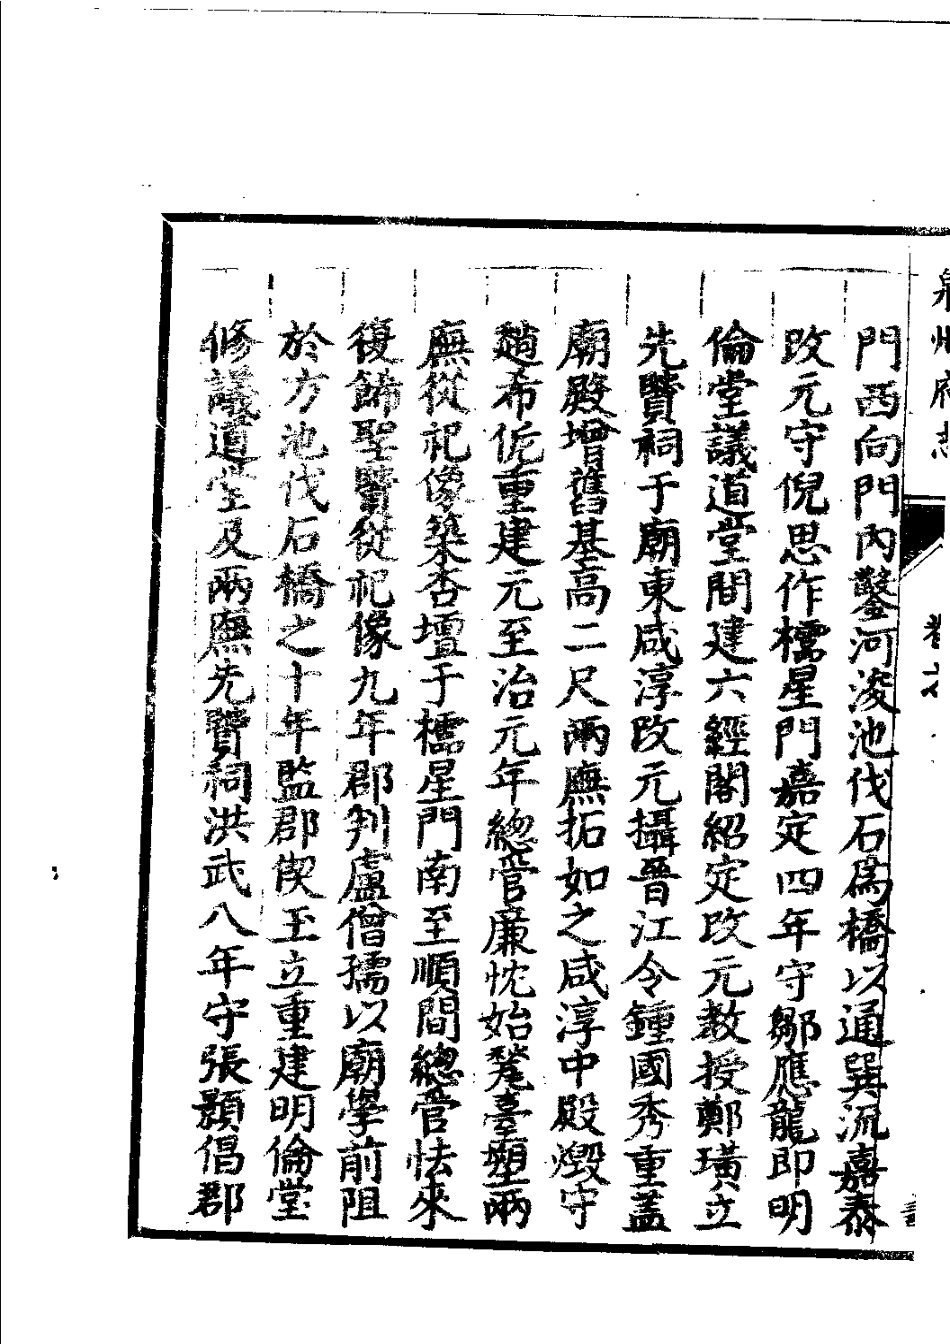 泉州府志
卷七
門西向門內鑿河浚池伐石為橋以通巽流嘉泰
改元守倪思作櫺星門嘉定四年守鄒應龍即明
倫堂議道堂間建六經閣紹定改元教授鄭璜立
先賢祠于廟東咸淳改元攝晉江令鍾國秀重蓋
廟殿增舊基高二尺兩廡拓如之咸淳中殿燬守
趙希侘重建元至治元年總管廉忱始甃臺塑兩
廡從祀像築杏壇于櫺星門南至順間總管怯來
復飾聖賢從祀像九年郡判盧僧孺以廟學前阻
於方池伐石橋之十年監郡偰玉立重建明倫堂
修議道堂及兩廡先賢祠洪武八年守張顥倡郡